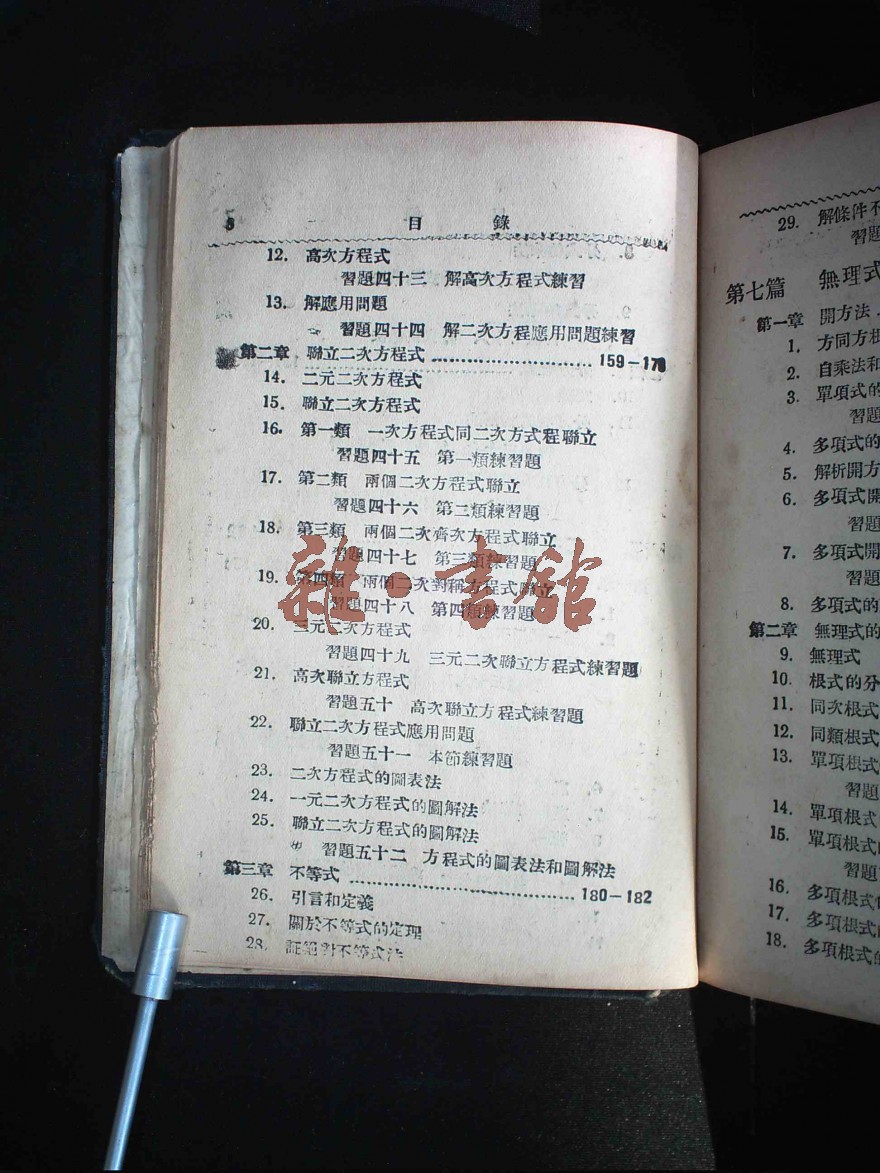 8 目 錄
12. 高次方程式
習題四十三 解高次方程式練習
13. 解應用問題
習題四十四 解二次方程應用問題練習
第二章 聯立二次方程式 159—179
14. 二元二次方程式
15. 聯立二次方程式
16. 第一類 一次方程式同二次方式程聯立
習題四十五 第一類練習題
17. 第二類 兩個二次方程式聯立
習題四十六 第二類練習題
18. 第三類 兩個二次齊次方程式聯立
習題四十七 第三類練習題
19. 第四類 兩個二次對稱方程式聯立
習題四十八 第四類練習題
20. 三元二次方程式
習題四十九 三元二次聯立方程式練習題
21. 高次聯立方程式
習題五十 高次聯立方程式練習題
22. 聯立二次方程式應用問題
習題五十一 本節練習題
23. 二次方程式的圖表法
24. 一元二次方程式的圖解法
25. 聯立二次方程式的圖解法
習題五十二 方程式的圖表法和圖解法
第三章 不等式 180—182
26. 引言和定義
27. 關於不等式的定理
28. 証絕對不等式法
雜·書館
29. 解條件不
習題
第七篇 無理式
第一章 開方法
1. 方同方根
2. 自乘法和
3. 單項式的
習題
4. 多項式的
5. 解析開方
6. 多項式開
習題
7. 多項式開
習題
8. 多項式的
第二章 無理式的
9. 無理式
10. 根式的分
11. 同次根式
12. 同類根式
13. 單項根式
習題
14. 單項根式
15. 單項根式
習題
16. 多項根式
17. 多項根式
18. 多項根式的